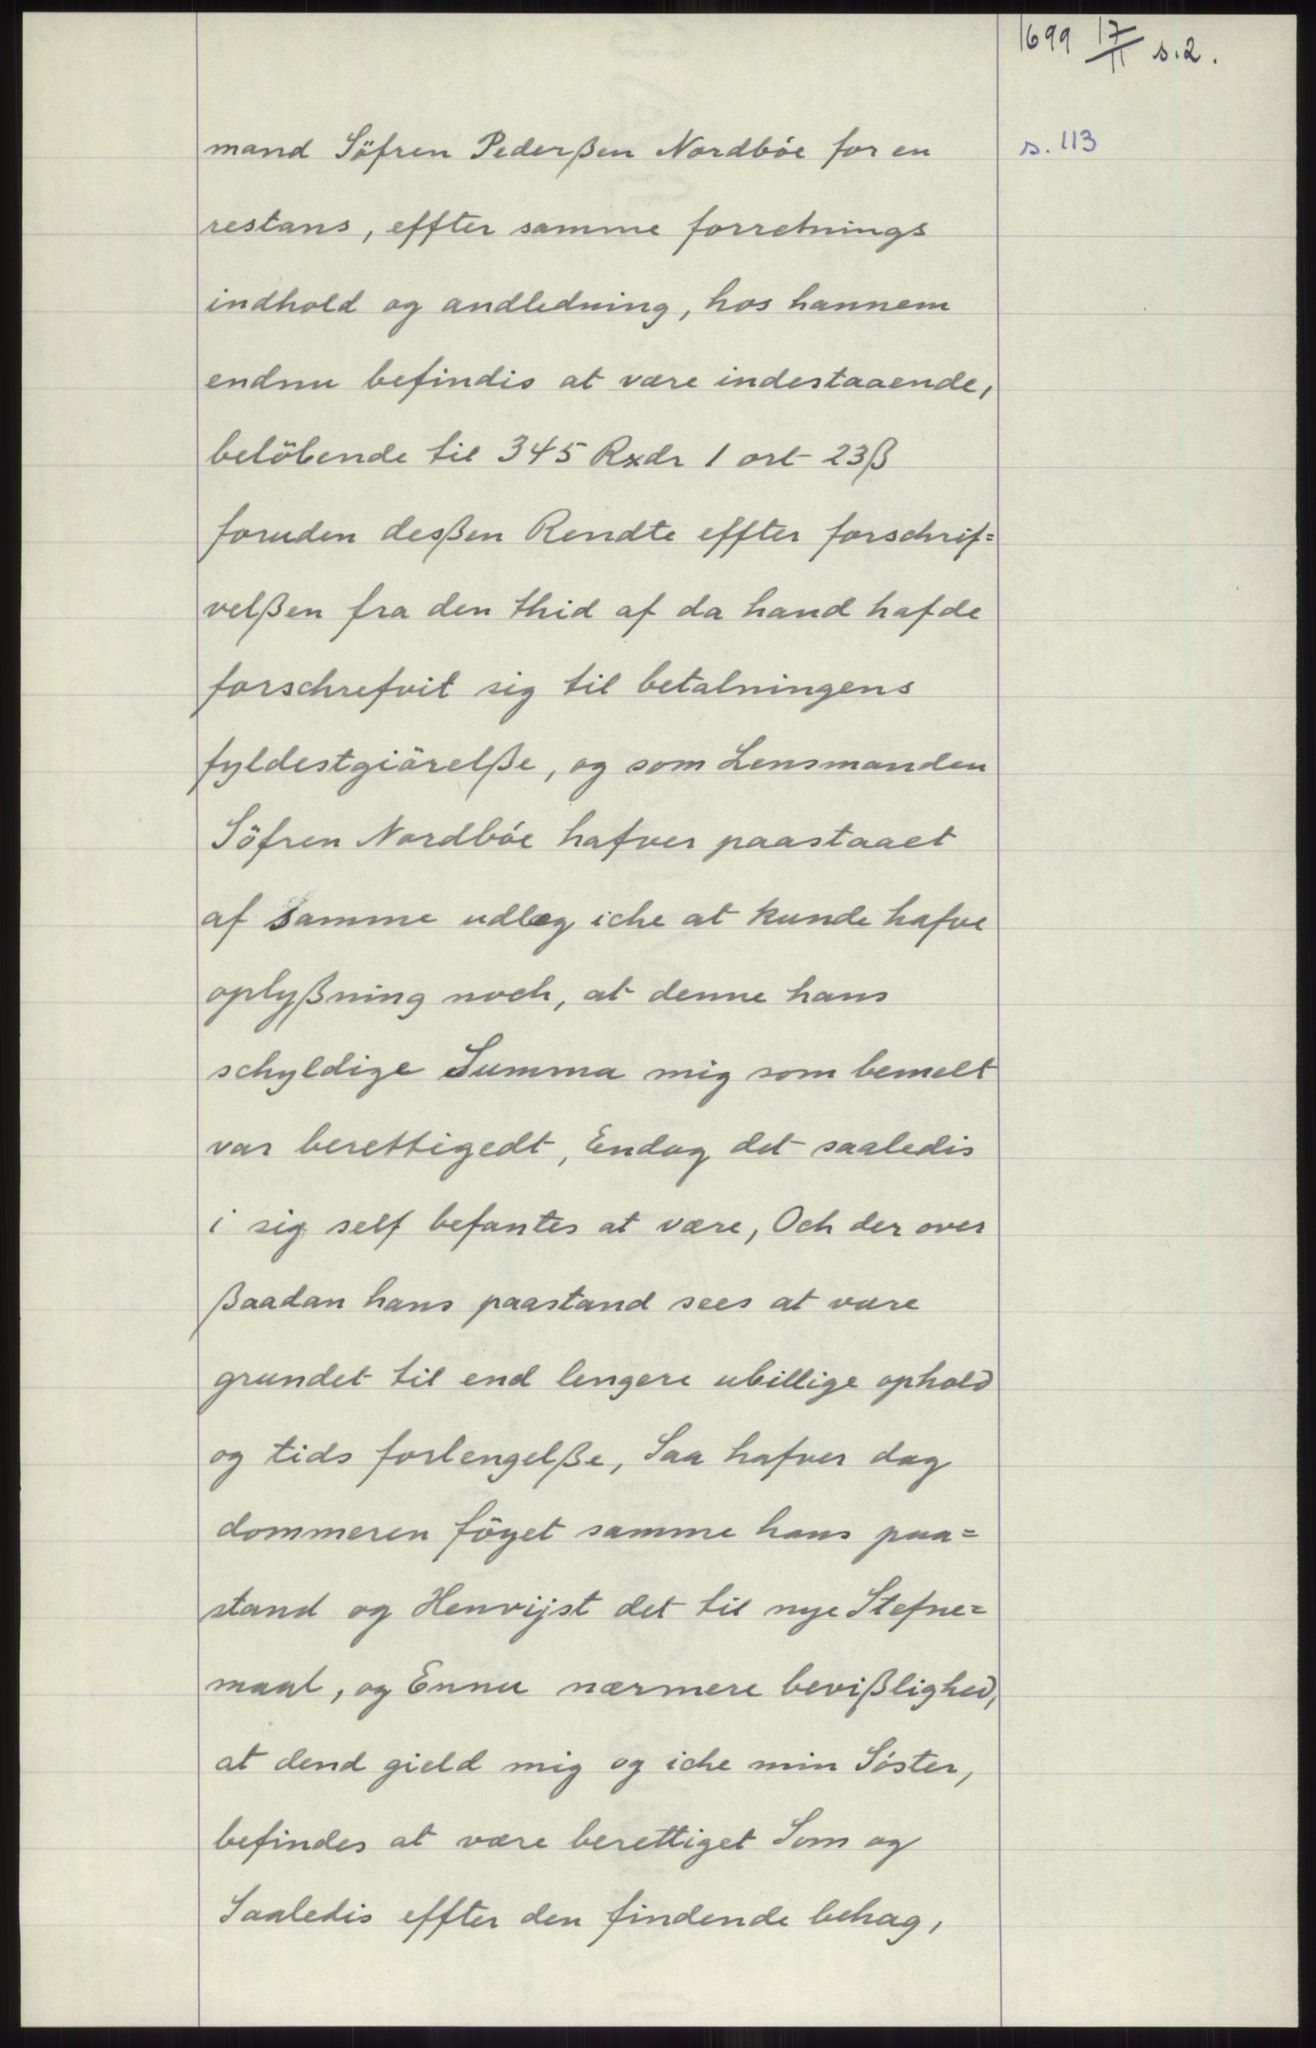 1699 17/11 s.2.
s. 113
mand Söfren Pederßen Nordbóe for en
restans, effter samme forretnings
indhold og andledning, hos hannem
endnu befindis at være indestaaende,
belöbende til 345 Rxdr 1 ort 23ß
foruden desßen Rendte effter forschrif=
velßen fra den thid af da hand hafde
forschrefvit sig til betalningens
fyldestgiörelße, og som Lensmanden
Söfren Nordbóe hafver paastaaet
af Samme udlæg iche at kunde hafve
oplyßning noch, at denne hans
schyldige Summa mig som bemelt
var berettigedt, Endog det saaledis
i sig self befantes at være, Och der over
ßaadan hans paastand sees at være
grundet til end lengere ubillige ophold
og tids forlengelße, Saa hafver dog
dommeren föyet samme hans paa=
stand og Henvijst det til nye Stefne=
maal, og Ennu nærmere bevißlighed,
at dend gield mig og iche min Söster,
befindes at være berettiget Som og
Saaledis effter den findende behag,